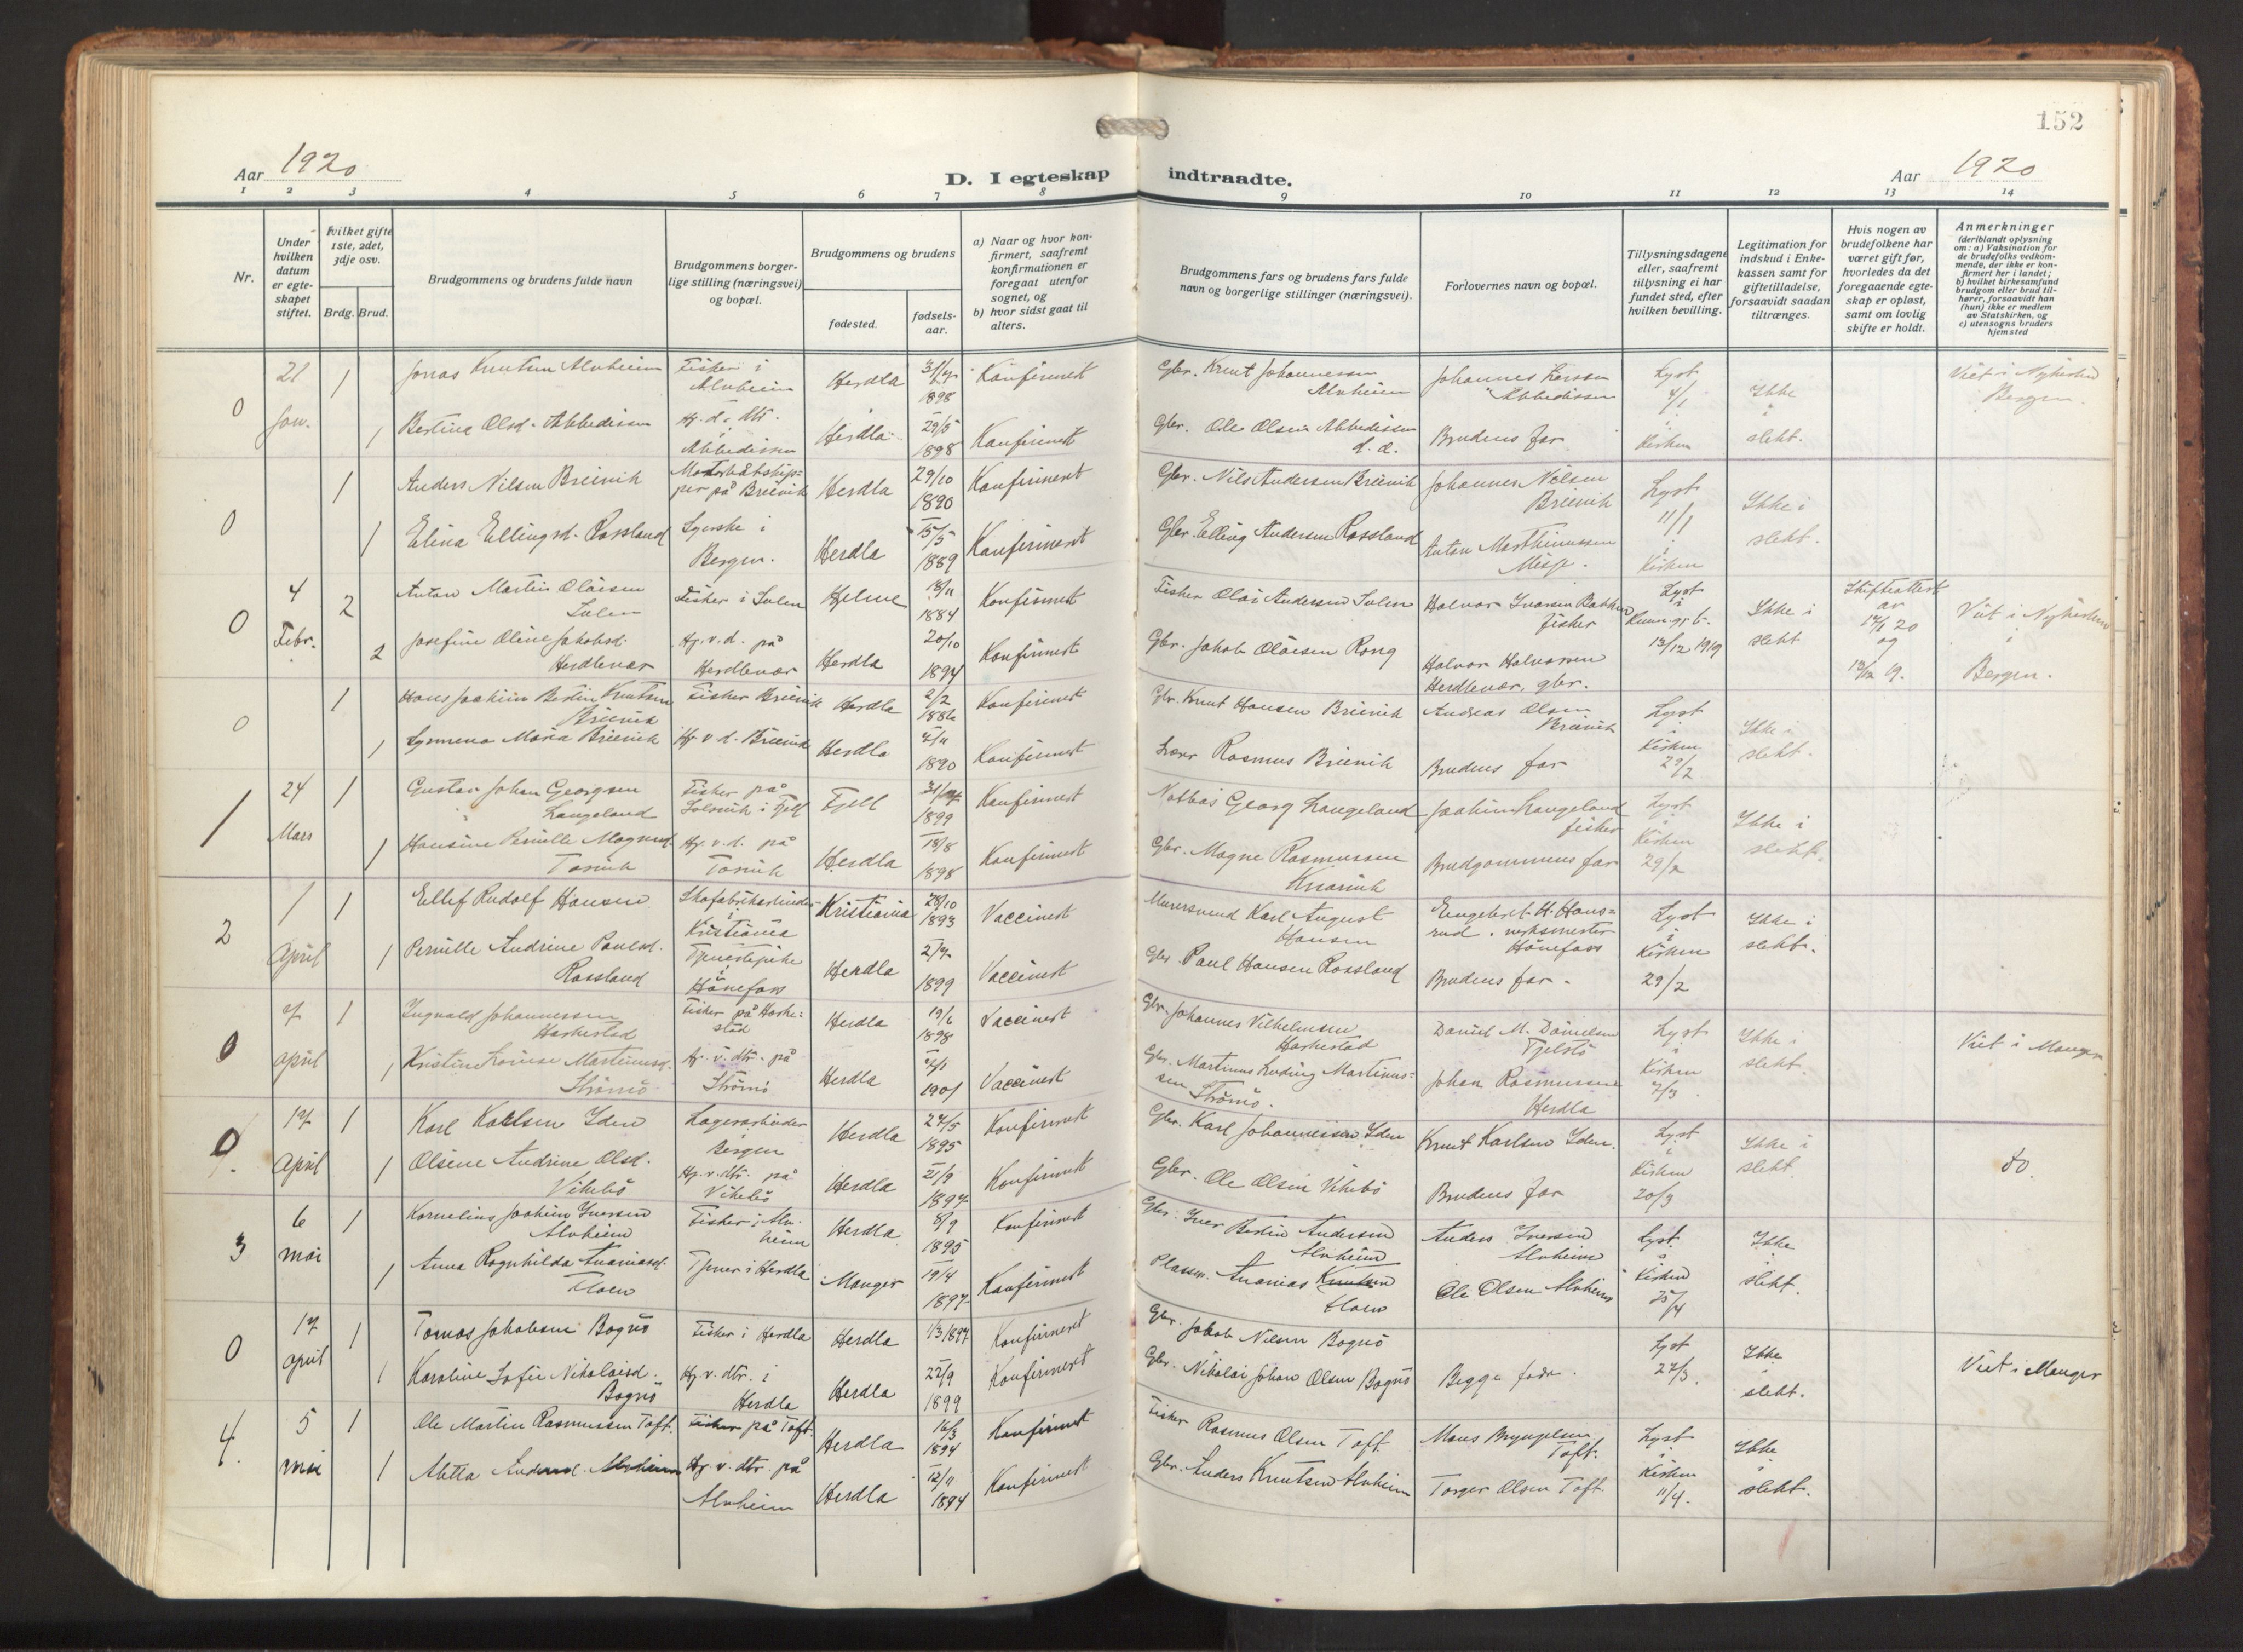 152
Aar 1920
D. I egteskap
indtraadte.
Aar 1920
1 2 3 4 5 6 7 8 9 10 11 12 13 14
Nr.
Under hvilken datum er egte-skapet stiftet.
Hvilket gifte 1ste, 2det, 3dje osv.
Brdg. Brud.
Brudgommens og brudens fulde navn
Brudgommens borger-lige stilling (næringsvei) og bopæl.
Brudgommens og brudens
fødested.
fødsels-aar.
a) Naar og hvor kon-firmert, saafremt konfirmationen er foregaat utenfor sognet, og
b) hvor sidst gaat til alters.
Brudgommens fars og brudens fars fulde navn og borgerlige stillinger (næringsvei).
Forlovernes navn og bopæl.
Tillysningsdagene eller, saafremt tillysning ei har fundet sted, efter hvilken bevilling.
Legitimation for indskud i Enke-kassen samt for giftetilladelse, forsaavidt saadan tiltrænges.
Hvis nogen av brudefolkene har været gift før, hvorledes da det foregaaende egte-skap er opløst, samt om lovlig skifte er holdt.
Anmerkninger
(deriblandt oplysning om: a) Vaksination for de brudefolks vedkom-mende, der ikke er kon-firmert her i landet; b) hvilket kirkesamfund brudgom eller brud til-hører, forsaavidt han (hun) ikke er medlem av Statskirken, og c) utensogns bruders hjemsted
0 21 Jan. 1 Jonas Knutsen Alvheim Fisker i Alvheim Herdla 1898 Konfirmert Gbr. Knut Johannessen Alvheim Johannes Abbedissen Lyst 4/1 i Kirken Ikke i slekt. Viet i Nykirken Bergen.
1 Bertina Olsd. Abbedissen Abbedissen Herdla 29/5 1898 Konfirmert Gbr. Ole Olsen Abbedissen Brudens far
0 1 Anders Nilsen Breivik Motorbåtskip-per på Breivik Herdla 29/10 1890 Konfirmert Gbr. Nils Andersen Breivik Johannes Nilsen Breivik Lyst 11/1 i Kirken Ikke i slekt.
1 Elina Ellingsd. Rossland Syerske i Bergen. Herdla 15/5 1889 Konfirmert Gbr. Elling Andersen Rossland Anton Marthinussen Misje.
0 4 Febr. 2 Anton Martin Olaisen Solen Fisker i Solen Hjelme 1884 Konfirmert Fisker Olai Andersen Solen Halvor Ivarsen Bakken fisker Lyst i 13/12 1919 Ikke i slekt Skifteattest av 20 og 19. Viet i Nykirken i Bergen.
2 Josefine Oline Jakobsd. Herdlevær Hj. v. d. på Herdlevær Herdla 20/10 1894 Konfirmert Gbr. Jakob Olaisen Rong Halvor Halvorsen Herdlevær, gbr.
0 1 Hans Joakim Bertin Knutsen Breivik Fisker Breivik Herdla 2/2 1886 Konfirmert Gbr. Knut Hansen Breivik Andreas Olsen Breivik Lyst i Kirken 29/2 Ikke i slekt.
1 Maria Breivik Hj. v. d. Breivik Herdla 1890 Konfirmert Lærer Rasmus Breivik Brudens far
1 24 Mars 1 Gustav Johan Georgsen Langeland Fisker på Solsvik i Fjell Fjell 1899 Konfirmert Georg Langeland Joakim Langeland fisker Lyst i Kirken 29/2 Ikke i slekt.
1 Hansine Pernille Magnesd. Torsvik Hj. v. d. på Torsvik Herdla 18/8 1898 Konfirmert Gbr. Magne Rasmussen Brudgommens far
2 1 April 1 Ellef Rudolf Hansen Skofabrikarbeider i Kristiania Kristiania 28/10 1893 Vaccinert Murersvend Karl August Hansen Engebret H. Hans-rud, verksmester Hønefoss Lyst i Kirken 29/2 Ikke i slekt.
1 Pernille Andrine Paulsd. Rossland Tjenestepike i Hønefoss Herdla 2/7 1899 Vaccinert Gbr. Paul Hansen Rossland Brudens far.
0 7 april 1 Ingvald Johannessen Harkestad Fisker på Harke-stad Herdla 19/6 1898 Vaccinert Gbr. Johannes Vilhelmsen Harkestad Daniel M. Danielsen Tjelstø Lyst i Kirken 7/3 Ikke i slekt. Viet i Manger
1 Kristine Lovise Martinusd. Strømø Hj. v. dtr. på Strømø Herdla 1901 Vaccinert Gbr. Martinus Ludvig Martinus-sen Strømø. Johan Rasmussen Herdla
0 17 April 1 Karl Karlsen Iden Lagerarbeider Bergen Herdla 24/5 1895 Konfirmert Gbr. Karl Johannessen Iden Knut Karlsen Iden. Lyst i Kirken 20/3 Ikke i slekt. do.
1 Olsine Andrine Olsd. Vikebø Hj. v. dtr. på Vikebø Herdla 21/9 1897 Konfirmert Gbr. Ole Olsen Vikebø Brudens far
3 6 mai 1 Kornelius Joakim Iversen Alvheim Fisker i Alv-heim Herdla 8/9 1895 Konfirmert Gbr. Iver Bertin Andersen Alvheim Anders Iversen Alvheim Lyst i Kirken 25/4 Ikke i slekt.
1 Anna Ragnhilda Ananiasd. Floen Tjener i Herdla Manger 19/4 1897 Konfirmert Plassm. Ananias Knutsen Floen Ole Olsen Alvheim
0 17 april 1 Tomas Jakobsen Bognø Fisker i Herdla Herdla 1/3 1897 Konfirmert Gbr. Jakob Nilsen Bognø Begge fedre. Lyst 27/3. Ikke i slekt. Viet i Manger
1 Karoline Sofie Nikolaisd. Bognø Hj. v. dtr. i Herdla Herdla 22/9 1899 Konfirmert Gbr. Nikolai Johan Olsen Bognø
4. 5 mai 1 Ole Martin Rasmussen Toft. Fisker på Toft. Herdla 16/3 1894 Konfirmert Fisker Rasmus Olsen Toft Mons Brynjelsen Toft. Lyst i Kirken 11/4. Ikke i slekt.
1 Aletta Andersd. Alvheim Hj. v. dtr. på Alvheim Herdla 12/11 1894 Konfirmert Gbr. Anders Knutsen Alvheim Torger Olsen Toft.